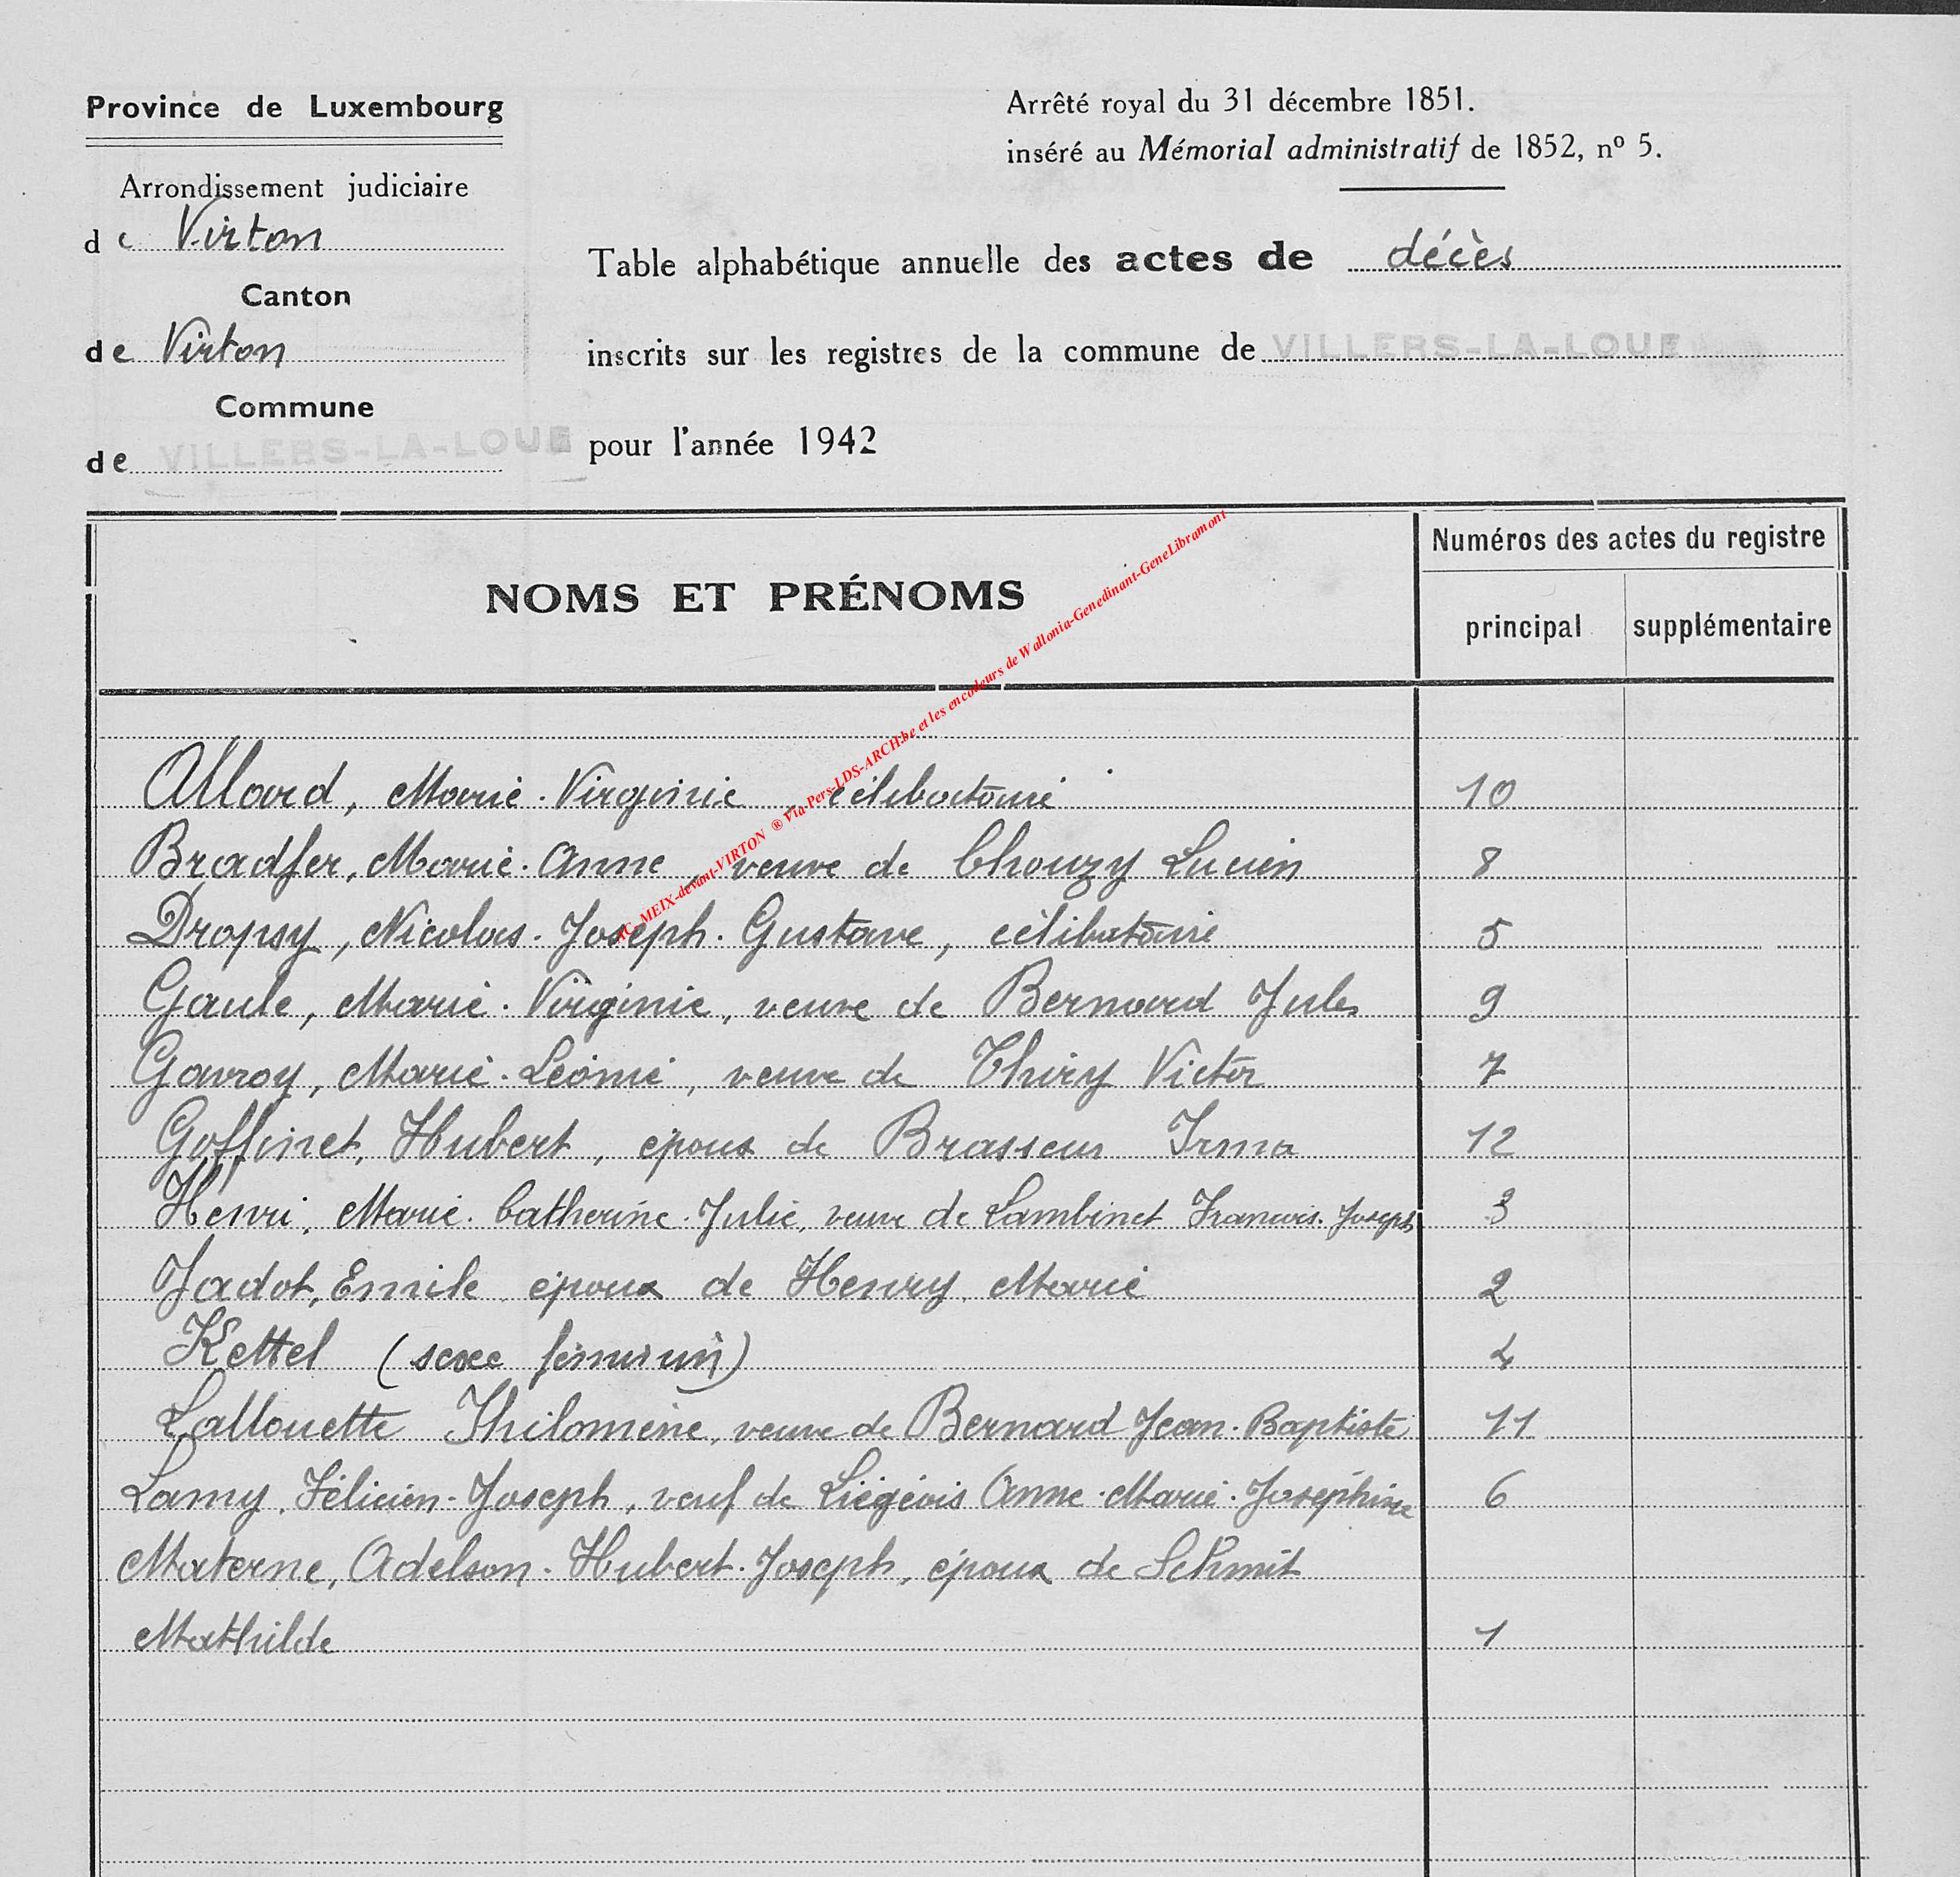 Province de Luxembourg
Arrêté royal du 31 décembre 1851.
inséré au Mémorial administratif de 1852, nº 5.
Arrondissement judiciaire
de Virton
Canton
de Virton
Commune
de VILLERS-LA-LOUE
Table alphabétique annuelle des actes de décès
inscrits sur les registres de la commune de VILLERS-LA-LOUE
pour l'année 1942
NOMS ET PRÉNOMS
Numéros des actes du registre
principal supplémentaire
AC-MEIX-devant-VIRTON ® Via Pers-LDS-ARCH.be et les encodeurs de Wallonia-Genedinant-GeneLibramont
Allard, Marie-Virginie, célibataire 10
Bradfer, Marie-Anne, veuve de Chouzy Lucien 8
Dropsy, Nicolas-Joseph-Gustave, célibataire 5
Gaule, Marie-Virginie, veuve de Bernard Jules 9
Gavroy, Marie-Léonie, veuve de Thiry Victor 7
Goffinet, Hubert, époux de Brasseur Irma 12
Henri, Marie-Catherine-Julie, veuve de Lambinet François-Joseph 3
Jadot, Emile époux de Henry Marie 2
Kettel (sexe féminin) 4
Lallouette Philomène, veuve de Bernard Jean-Baptiste 11
Lamy, Félicien-Joseph, veuf de Liégeois Anne-Marie-Joséphine 6
Materne, Adelson-Hubert-Joseph, époux de Schmit
Mathilde 1